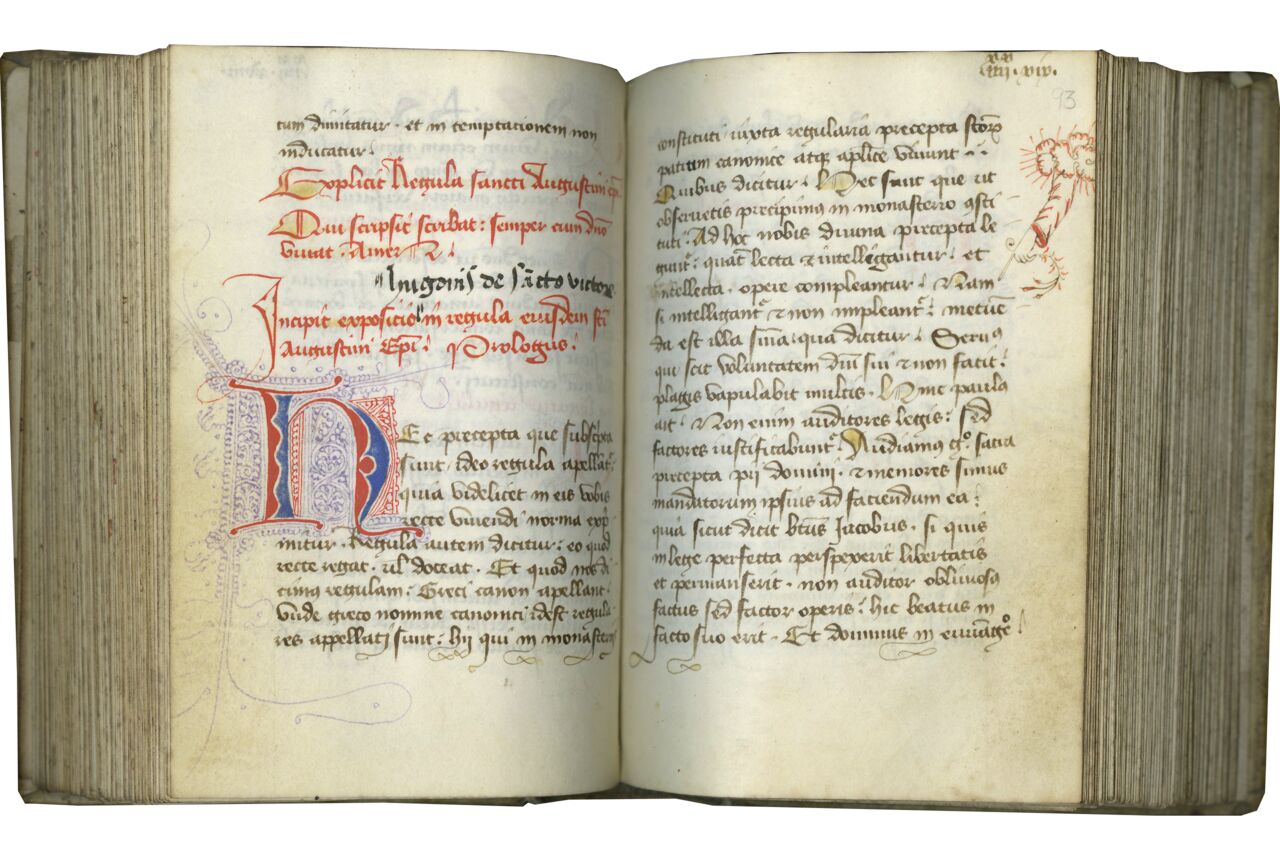 tum dimitatur · et in temptacionem non
inducatur ·
Explicit Regula sancti Augustini epi
Qui scripsit scribat : semper cum dno
vivat · Amen
"hugonis de sancto victore
Incipit expositio "in regula eiusdem sci
Augustini Epi · Prologus ·
Ec precepta que subscripta
sunt · ideo regula apellatr
quia videlicet in eis vobis
recte vivendi norma exp
mitur · Regula autem dicitur : eo quod
recte regat · ul doceat · Et quod nos di
cimus regulam : Greci canon apellant ·
Unde greco nomine canonici idest regula
res appellati sunt : hii qui in monasteriis
93
constituti iuxta regularia precepta scorum
patrum canonice atque aplice vivunt ·
Quibus dicitur · Hec sunt que ut
observetis precipimus in monasterio consti
tuti · Ad hoc nobis divina precepta le
guntr : quatenus lecta et intelligantur : et
intellecta · opere compleantur · Nam
si intelligantr et non impleantr : metuen
da est illa sentencia qua dicitur · Servus
qui scit voluntatem dni sui et non facit :
plagis vapulabit multis · Hinc paulus
ait · Non enim auditores legis : sed
factores iustificabuntr · Audiamus go sacra
precepta pii domini · et memores simus
mandatorum ipsius ad faciendum ea :
quia sicut dicit btus Jacobus · si quis
in lege perfecta perspexerit libertatis
et permanserit · non auditor obliviosus
factus sed factor operis : hic beatus in
facto suo erit · Et dominus in ewange